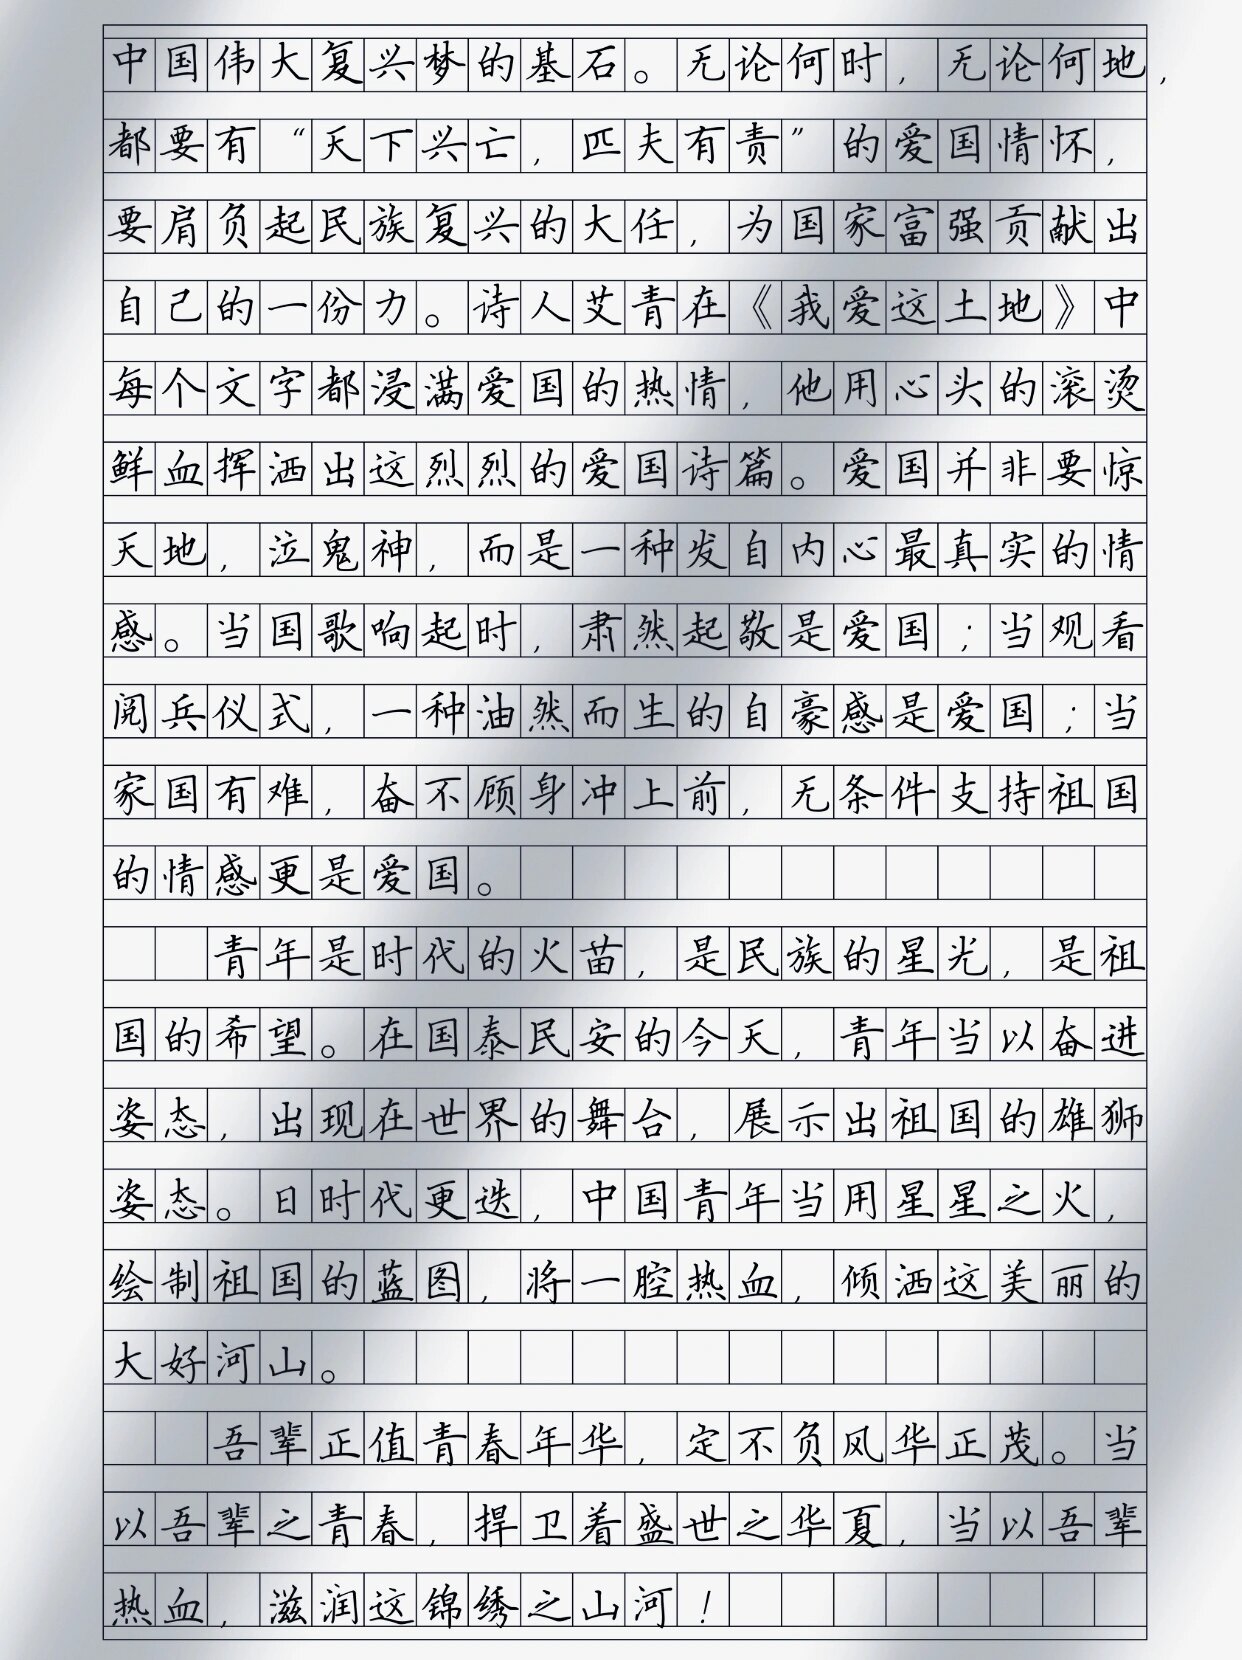 中国伟大复兴梦的基石。无论何时，无论何地，
都要有“天下兴亡，匹夫有责”的爱国情怀，
要肩负起民族复兴的大任，为国家富强贡献出
自己的一份力。诗人艾青在《我爱这土地》中
每个文字都浸满爱国的热情，他用心头的滚烫
鲜血挥洒出这烈烈的爱国诗篇。爱国并非要惊
天地，泣鬼神，而是一种发自内心最真实的情
感。当国歌响起时，肃然起敬是爱国；当观看
阅兵仪式，一种油然而生的自豪感是爱国；当
家国有难，奋不顾身冲上前，无条件支持祖国
的情感更是爱国。
青年是时代的火苗，是民族的星光，是祖
国的希望。在国泰民安的今天，青年当以奋进
姿态，出现在世界的舞台，展示出祖国的雄狮
姿态。日时代更迭，中国青年当用星星之火，
绘制祖国的蓝图，将一腔热血，倾洒这美丽的
大好河山。
吾辈正值青春年华，定不负风华正茂。当
以吾辈之青春，捍卫着盛世之华夏，当以吾辈
热血，滋润这锦绣之山河！